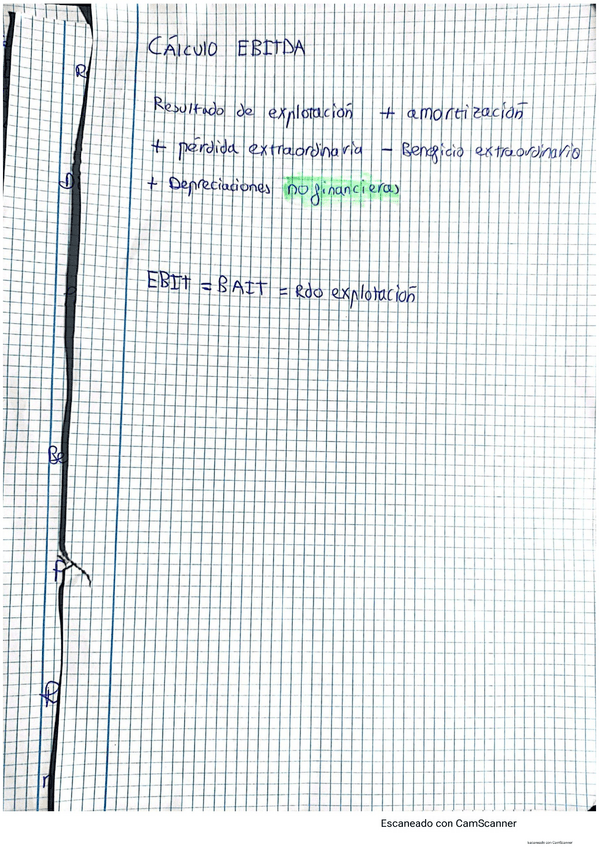 CÁlculo EBITDA
Resultado de explotación + amortización
+ pérdida extraordinaria - Beneficio extraordinario
+ Depreciaciones no financieras
EBIT = BAIT = Rdo explotación
R
D
Be
Escaneado con CamScanner
Escaneado con CamScanner